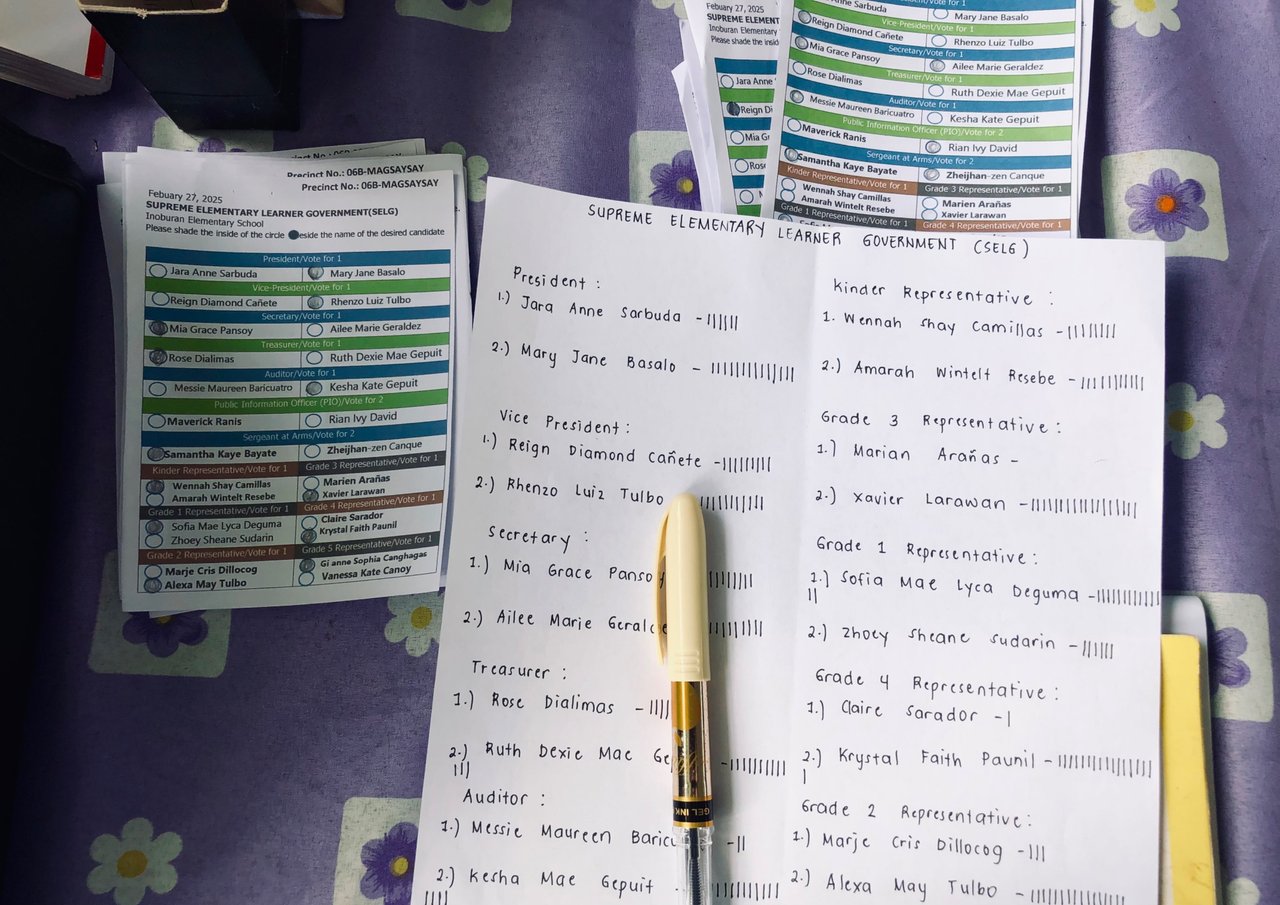 Precinct No.: 06B-MAGSAYSAY
Precinct No.: 06B-MAGSAYSAY
Febuary 27, 2025
SUPREME ELEMENTARY LEARNER GOVERNMENT(SELG)
Inoburan Elementary School
Please shade the inside of the circle eside the name of the desired candidate
President/Vote for 1
Jara Anne Sarbuda Mary Jane Basalo
Vice-President/Vote for 1
Reign Diamond Cañete Rhenzo Luiz Tulbo
Secretary/Vote for 1
Mia Grace Pansoy Ailee Marie Geraldez
Treasurer/Vote for 1
Rose Dialimas Ruth Dexie Mae Gepuit
Auditor/Vote for 1
Messie Maureen Baricuatro Kesha Kate Gepuit
Public Information Officer (PIO)/Vote for 2
Maverick Ranis Rian Ivy David
Sergeant at Arms/Vote for 2
Samantha Kaye Bayate Zheijhan-zen Canque
Kinder Representative/Vote for 1 Grade 3 Representative/Vote for 1
Wennah Shay Camillas Marien Arañas
Amarah Wintelt Resebe Xavier Larawan
Grade 1 Representative/Vote for 1 Grade 4 Representative/Vote for 1
Sofia Mae Lyca Deguma Claire Sarador
Zhoey Sheane Sudarin Krystal Faith Paunil
Grade 2 Representative/Vote for 1 Grade 5 Representative/Vote for 1
Marje Cris Dillocog Gi anne Sophia Canghagas
Alexa May Tulbo Vanessa Kate Canoy
Febuary 27, 2025
SUPREME ELEMENT
Inoburan Elementary
Please shade the insid
Jara Anne
Reign Di
Mia G
Rose
Jara Anne Sarbuda Mary Jane Basalo
Vice-President/Vote for 1
Reign Diamond Cañete Rhenzo Luiz Tulbo
Secretary/Vote for 1
Mia Grace Pansoy Ailee Marie Geraldez
Treasurer/Vote for 1
Rose Dialimas Ruth Dexie Mae Gepuit
Auditor/Vote for 1
Messie Maureen Baricuatro Kesha Kate Gepuit
Public Information Officer (PIO)/Vote for 2
Maverick Ranis Rian Ivy David
Sergeant at Arms/Vote for 2
Samantha Kaye Bayate Zheijhan-zen Canque
Kinder Representative/Vote for 1 Grade 3 Representative/Vote for 1
Wennah Shay Camillas Marien Arañas
Amarah Wintelt Resebe Xavier Larawan
Grade 1 Representative/Vote for 1 Grade 4 Representative/Vote for 1
SUPREME ELEMENTARY LEARNER GOVERNMENT (SELG)
President :
1.) Jara Anne Sarbuda -
2.) Mary Jane Basalo -
Vice President :
1.) Reign Diamond Cañete -
2.) Rhenzo Luiz Tulbo
Secretary :
1.) Mia Grace Pansoy
2.) Ailee Marie Geralde
Treasurer :
1.) Rose Dialimas -
2.) Ruth Dexie Mae Ge -
Auditor :
1.) Messie Maureen Baricu -
2.) Kesha Mae Gepuit -
Kinder Representative :
1. Wennah Shay Camillas -
2.) Amarah Wintelt Resebe -
Grade 3 Representative :
1.) Marian Arañas -
2.) Xavier Larawan -
Grade 1 Representative :
1.) Sofia Mae Lyca Deguma -
2.) Zhoey Sheane Sudarin -
Grade 4 Representative :
1.) Claire Sarador -
2.) Krystal Faith Paunil -
Grade 2 Representative :
1.) Marje Cris Dillocog -
2.) Alexa May Tulbo -
GEL INK